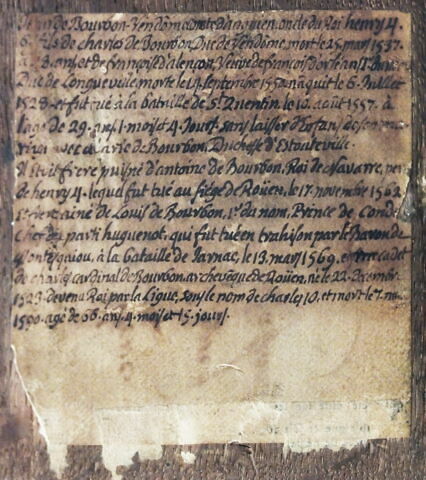 Jean de Bourbon-Vendôme comte d'anguien, oncle du Roi henry 4.
6. fils de charles de Bourbon Duc de Vendôme, mort le 25. mars 1537.
à et de françoise d'alençon, Veuve de francois d'orleans
Duc de Longueville, morte le 14. septembre 1550 náquit le 6. Juillet
1528. et fut tué à la bataille de St. Quentin, le 10. août 1557. à
l'age de 29. ans 1. mois et 4. jours, sans laisser d'Enfans de son ma-
riage avec marie de Bourbon, Duchesse d'Estouteville.
Il étoit frere puisné d'antoine de Bourbon, Roi de Navarre, pere
de henry 4. lequel fut tué au siége de Roüen, le 17. novembre 1562.
et frere ainé de Louis de Bourbon, 1er. du nom, Prince de Condé
chef du parti huguenot, qui fut tué en trahison par le Baron de
Montesquiou, à la bataille de Jarnac, le 13. mars 1569. et frere cadet
de charles cardinal de Bourbon, archevêque de Roüen, né le 22. Decembre
1523. devenu Roi par la Ligue, sous le nom de charles 10. et mort le 7. mai
1590. agé de 66. ans, 4. mois et 15. jours.